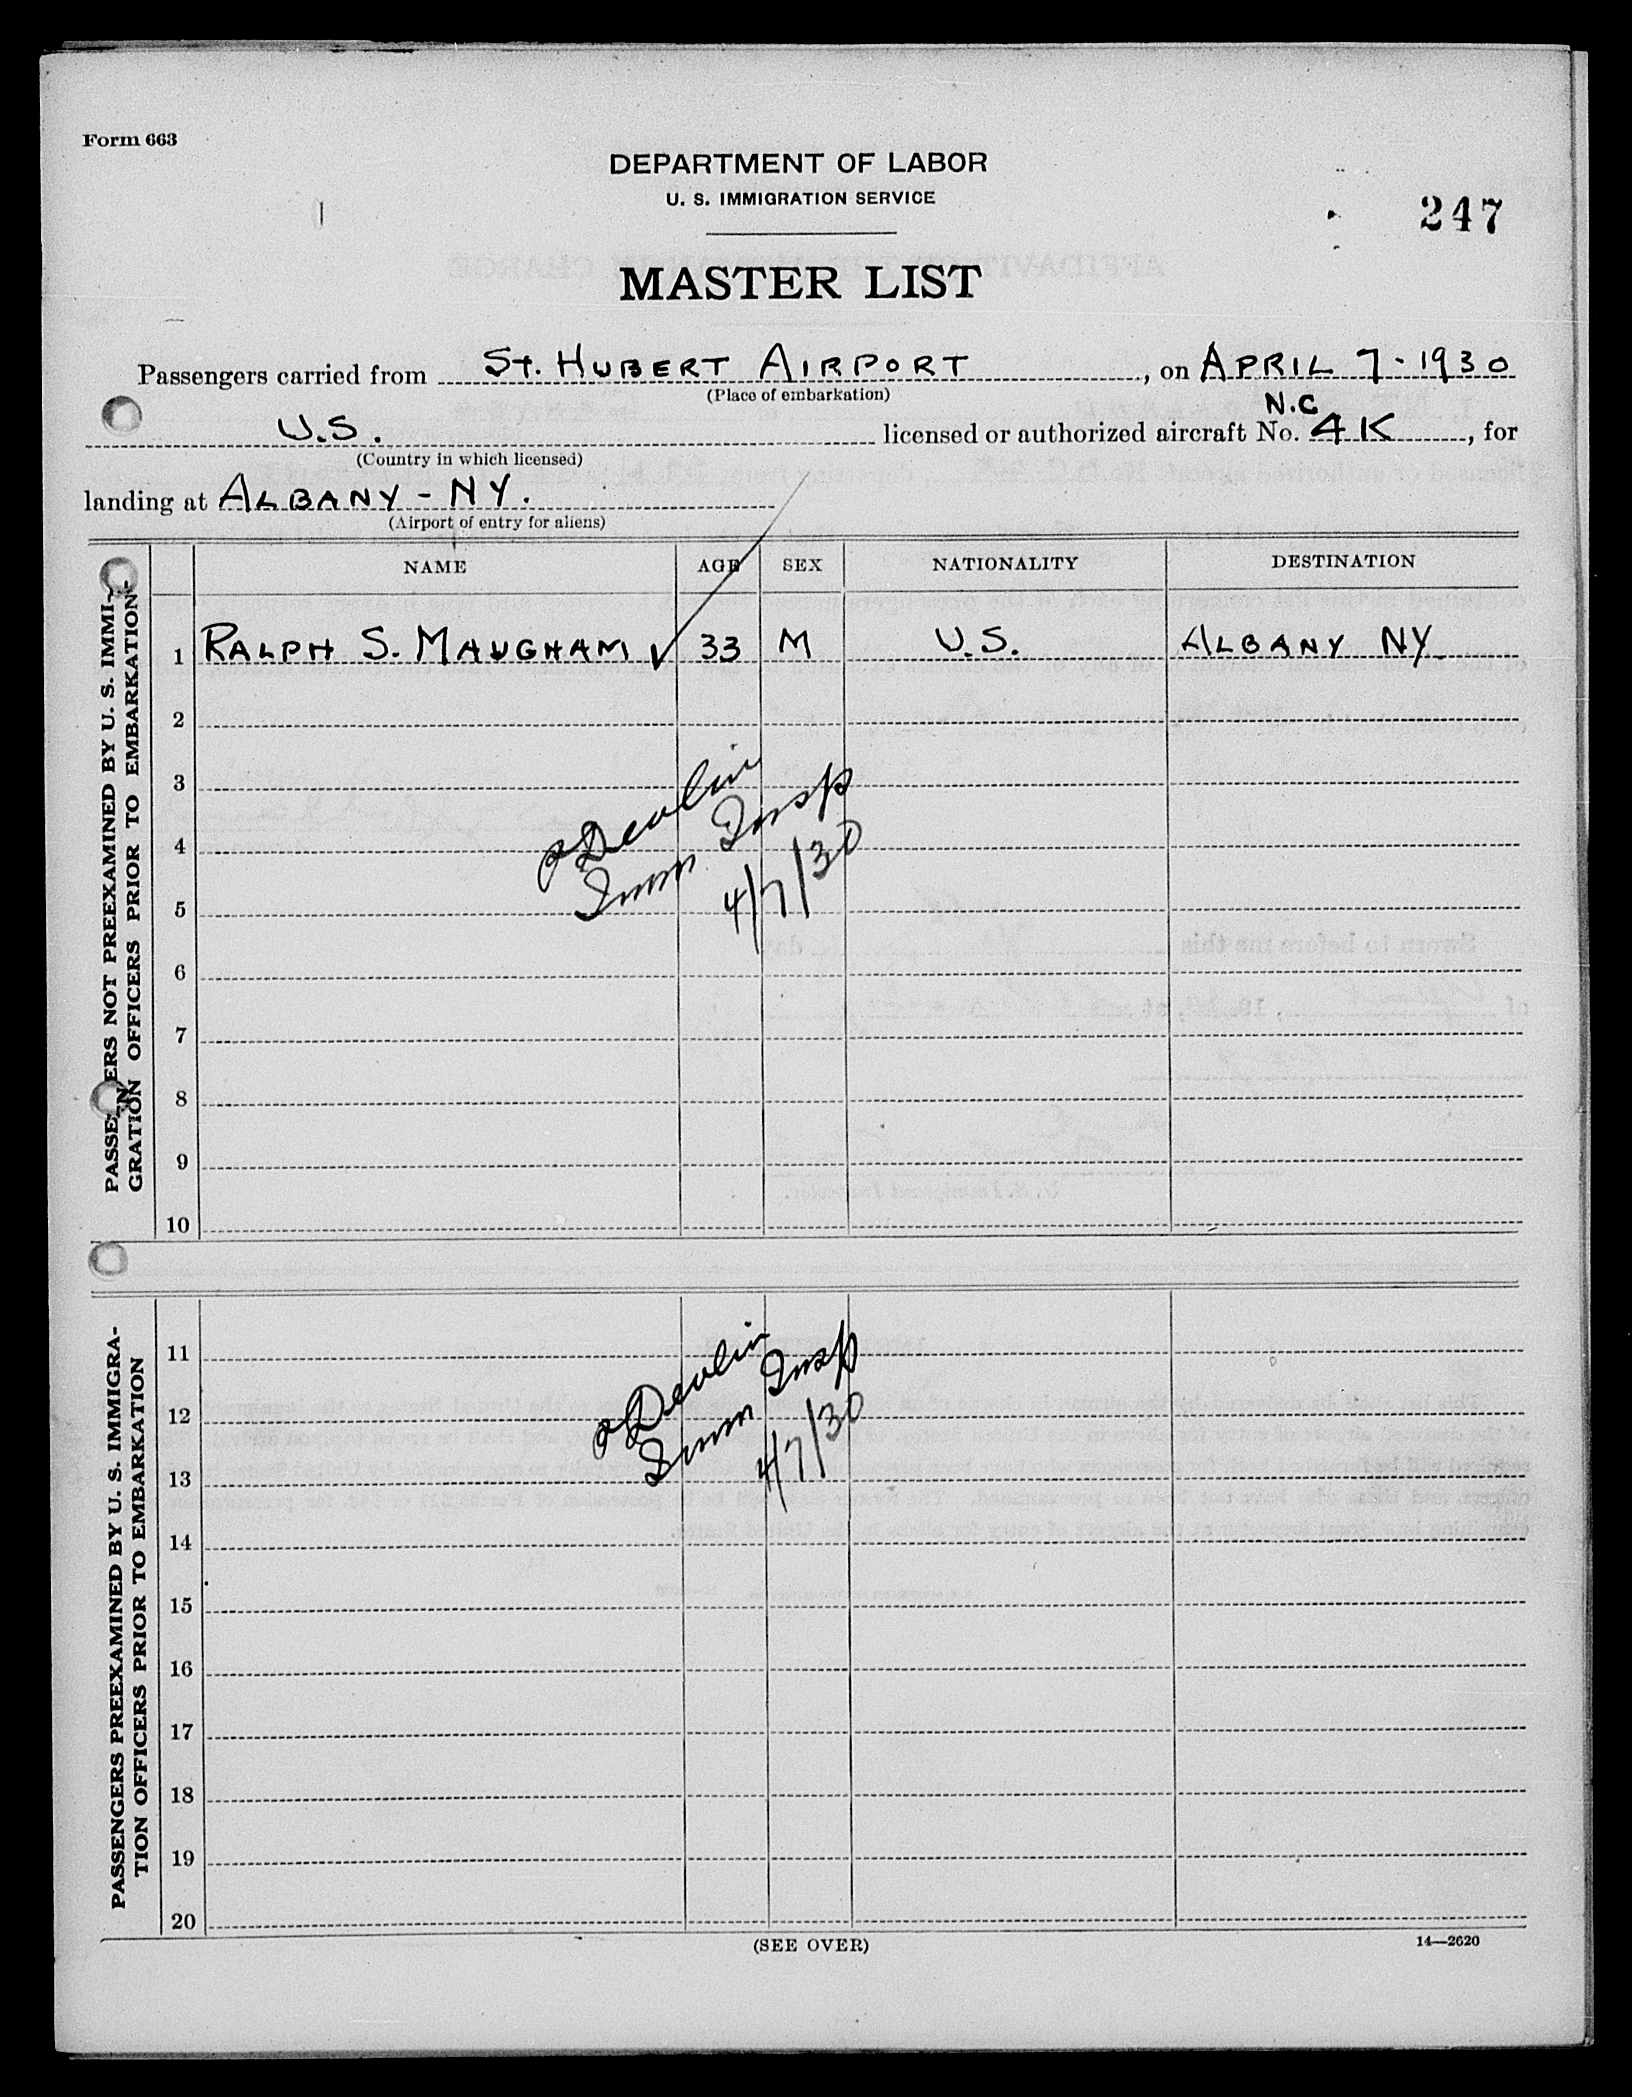 Form 663
DEPARTMENT OF LABOR
U. S. IMMIGRATION SERVICE
247
MASTER LIST
Passengers carried from St. HUBERT AIRPORT, on APRIL 7-1930
(Place of embarkation)
N.C
U.S. licensed or authorized aircraft No. 4K, for
(Country in which licensed)
landing at ALBANY - NY.
(Airport of entry for aliens)
NAME AGE SEX NATIONALITY DESTINATION
PASSENGERS NOT PREEXAMINED BY U. S. IMMI-
GRATION OFFICERS PRIOR TO EMBARKATION
1 RALPH S. MAUGHAM ✓ 33 M U.S. ALBANY NY.
2
3
4
5
Devlin
Imm Insp
4/7/30
6
7
8
9
10
PASSENGERS PREEXAMINED BY U. S. IMMIGRA-
TION OFFICERS PRIOR TO EMBARKATION
11
12
13
Devlin
Imm Insp
4/7/30
14
15
16
17
18
19
20
(SEE OVER)
14—2620